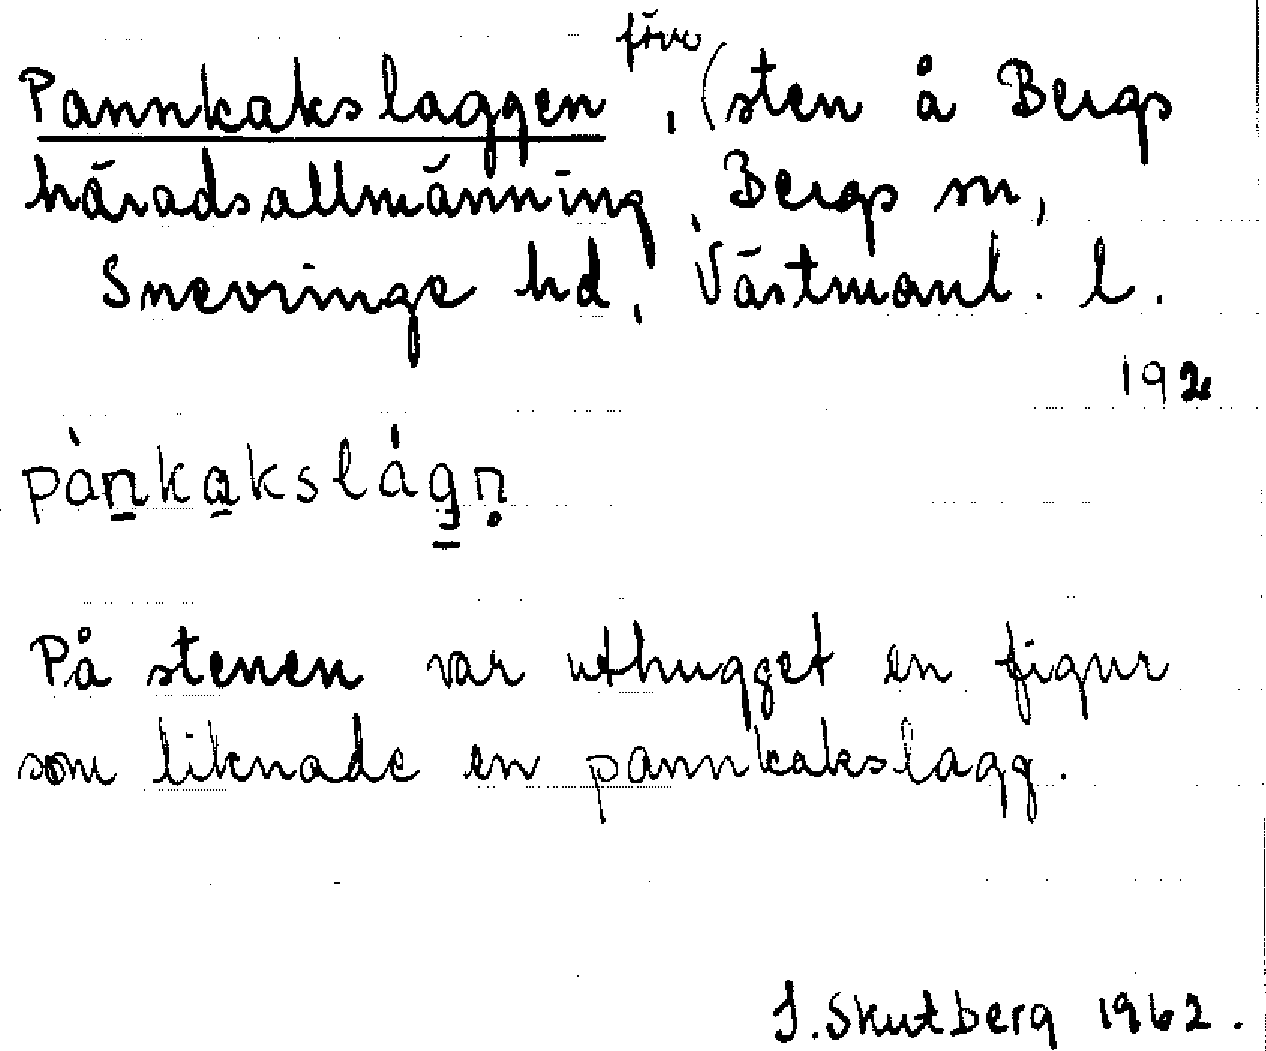 förv
Pannkakslaggen, (sten å Bergs
häradsallmänning, Bergs sn,
Snevringe hd, Västmanl. l.
192
pànkakslágn̥
På stenen var uthugget en figur
som liknade en pannkakslagg.
J. Skutberg 1962.